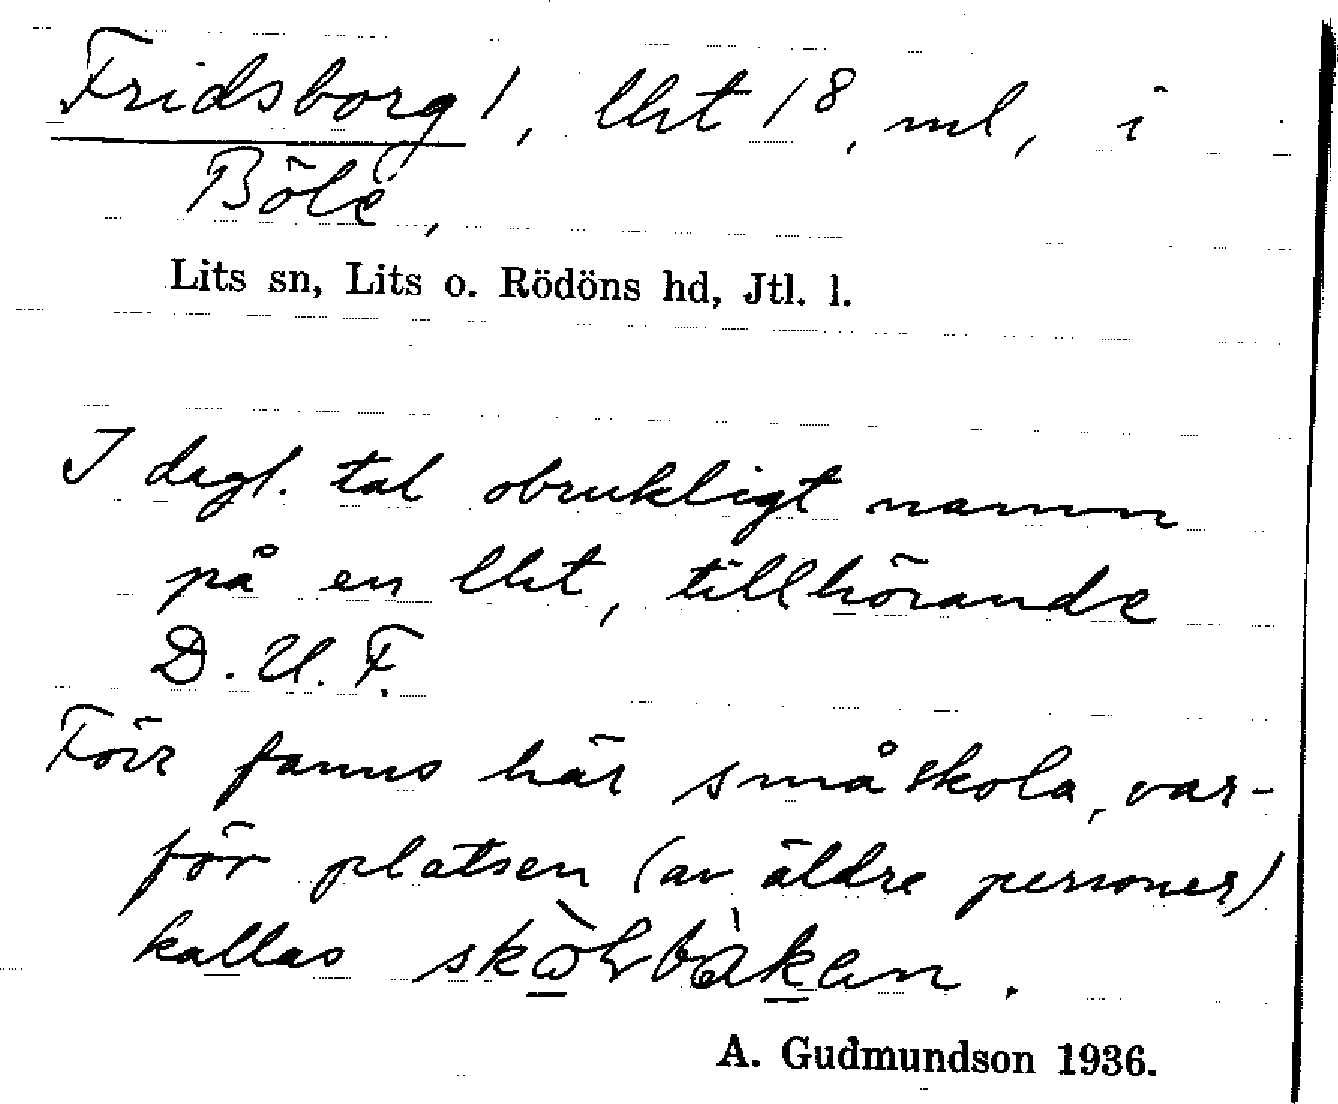 Fridsborg 1, lht 1⁸, ml, i
Böle,
Lits sn, Lits o. Rödöns hd, Jtl. l.
I dagl. tal obrukligt namn
på en lht, tillhörande
D. U. F.
Förr fanns här småskola, var-
för platsen (av äldre personer)
kallas
A. Gudmundson 1936.